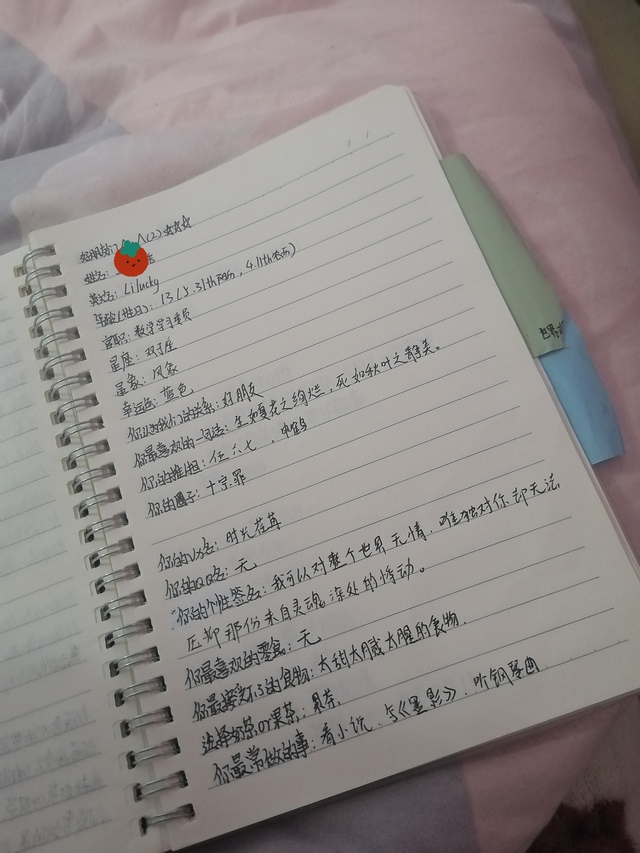 姓名:
英文名: Lilucky
年龄(性日): 13 (5.31th阳历, 4.11th农历)
官职: 数学学习委员
星座: 双子座
星象: 风象
幸运色: 蓝色
你认为我们的关系: 好朋友
你最喜欢的一句话: 生如夏花之绚烂, 死如秋叶之静美。
你的推/担: 伍六七,
你的圈子: 十宗罪
你的Vx名: 时光荏苒
你的QQ名: 无
你的个性签名: 我可以对整个世界无情, 唯独对你却无法
压抑那份来自灵魂深处的悸动。
你最喜欢的零食: 无
你最接受不了的食物: 太甜太咸太腥的食物.
选择奶茶or果茶: 果茶
你最常做的事: 看小说. 写《墨影》. 听钢琴曲
世界